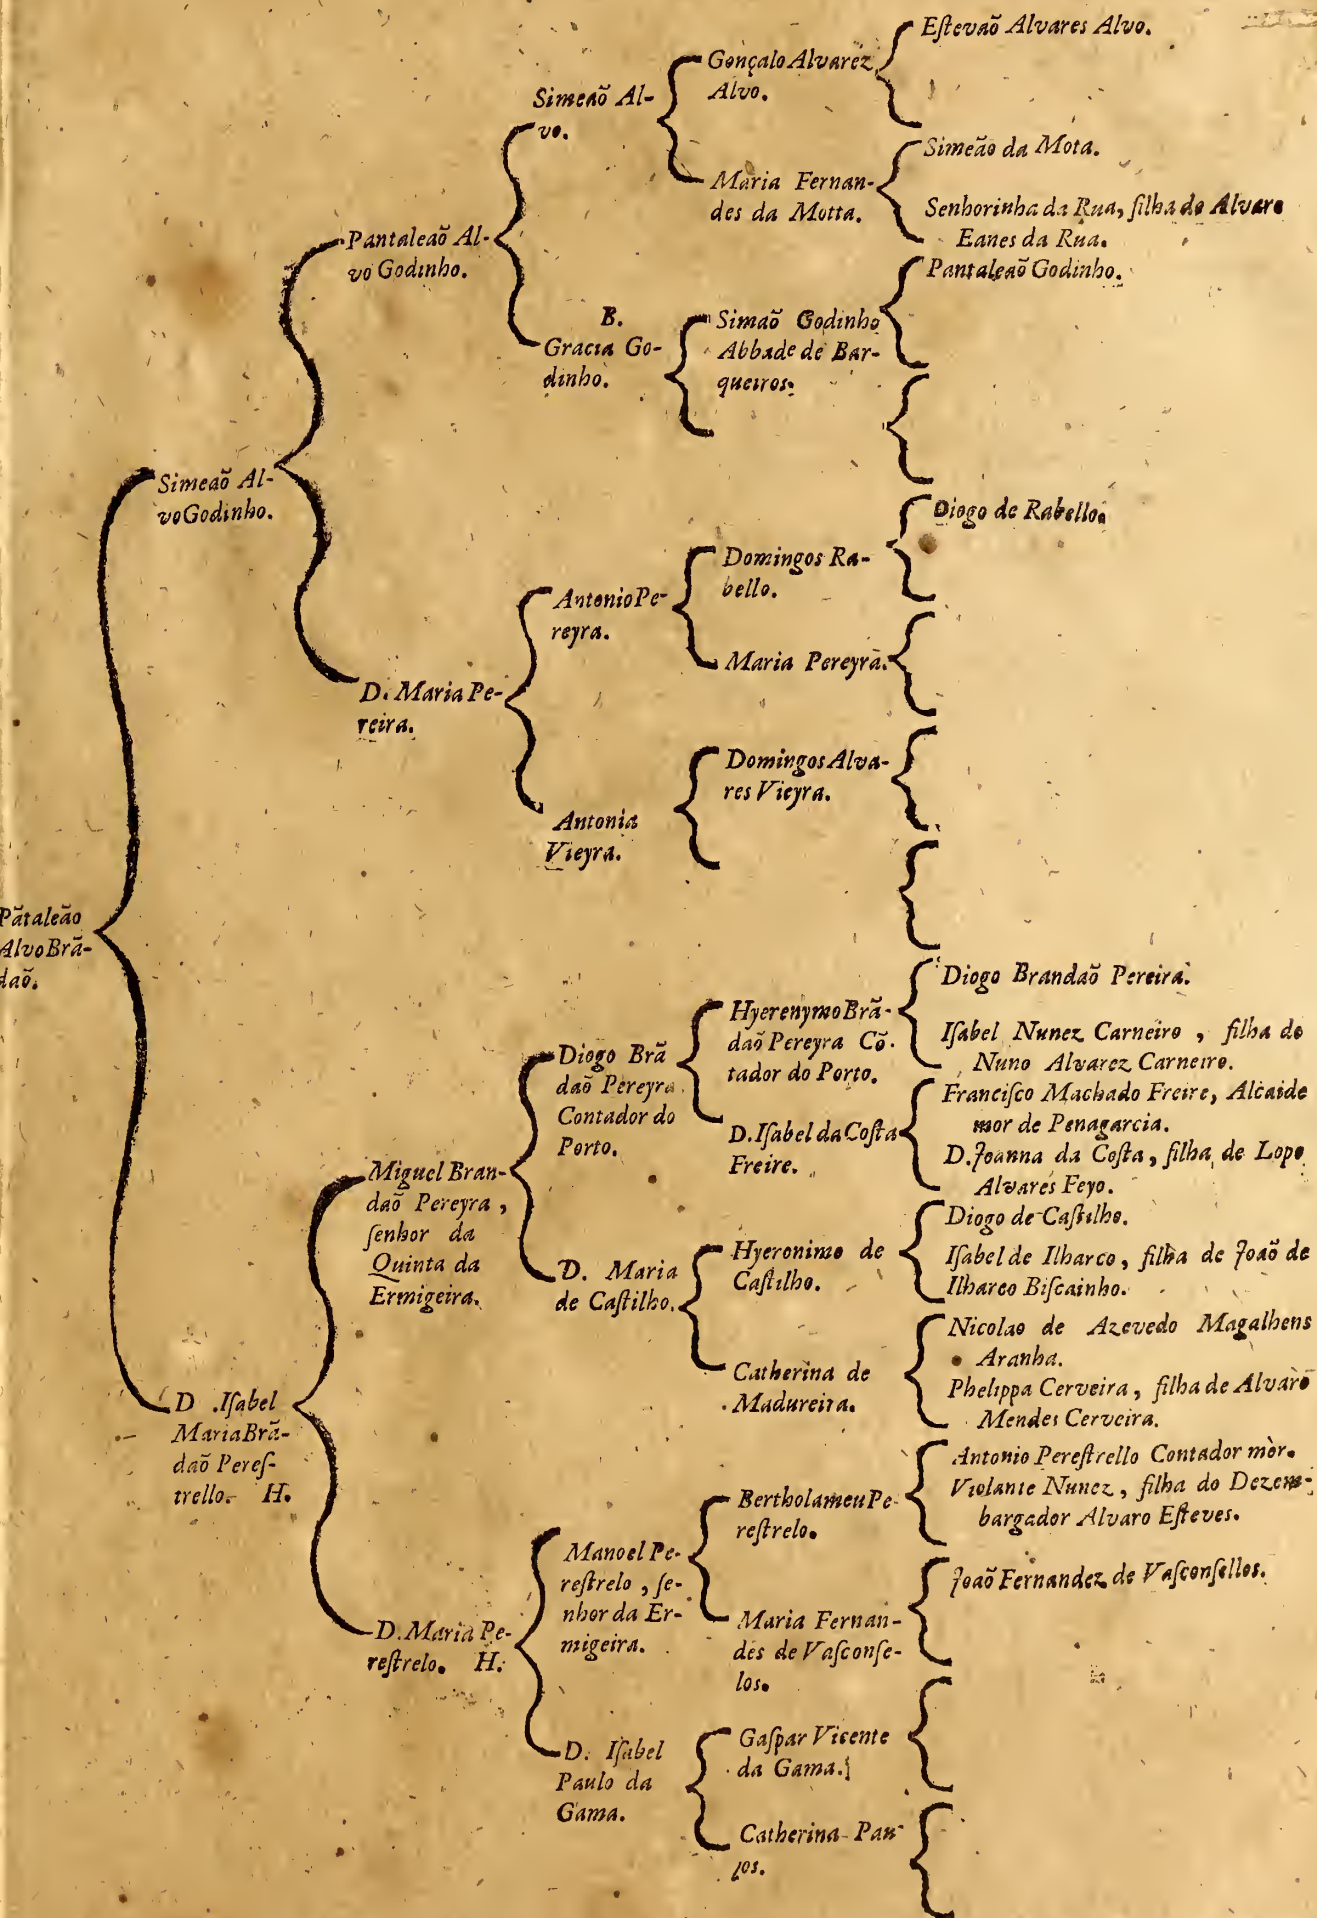 Pãtaleão
Alvo Brã-
daõ.
Simeaõ Al-
vo Godinho.
D. Iſabel
Maria Brã-
daõ Pereſ-
trello. H.
Pantaleaõ Al-
vo Godinho.
D. Maria Pe-
reira.
Miguel Bran-
daõ Pereyra,
ſenhor da
Quinta da
Ermigeira.
D. Maria Pe-
reſtrelo. H.
Simeaõ Al-
vo.
B.
Gracia Go-
dinho.
Antonio Pe-
reyra.
Antonia
Vieyra.
Diogo Brã
daõ Pereyra
Contador do
Porto.
D. Maria
de Caſtilho.
Manoel Pe-
reſtrelo, ſe-
nhor da Er-
migeira.
D. Iſabel
Paulo da
Gama.
Gonçalo Alvarez
Alvo.
Maria Fernan-
des da Motta.
Simaõ Godinho
Abbade de Bar-
queiros.
Domingos Ra-
bello.
Maria Pereyra.
Domingos Alva-
res Vieyra.
Hyerenymo Brã-
daõ Pereyra Cõ-
tador do Porto.
D. Iſabel da Coſta
Freire.
Hyeronimo de
Caſtilho.
Catherina de
Madureira.
Bertholameu Pe-
reſtrelo.
Maria Fernan-
des de Vaſconſe-
los.
Gaſpar Vicente
da Gama.
Catherina Pau-
los.
Eſtevaõ Alvares Alvo.
Simeão da Mota.
Senhorinha da Rua, filha de Alvaro
Eanes da Rua.
Pantaleaõ Godinho.
Diogo de Rabello.
Diogo Brandaõ Pereira.
Iſabel Nunez Carneiro, filha de
Nuno Alvarez Carneiro.
Franciſco Machado Freire, Alcaide
mor de Penagarcia.
D. Joanna da Coſta, filha de Lopo
Alvares Feyo.
Diogo de Caſtilho.
Iſabel de Ilharco, filha de Joaõ de
Ilharco Biſcainho.
Nicolao de Azevedo Magalhens
Aranha.
Phelippa Cerveira, filha de Alvaro
Mendes Cerveira.
Antonio Pereſtrello Contador mòr.
Violante Nunez, filha do Dezem-
bargador Alvaro Eſteves.
Joaõ Fernandez de Vaſconſellos.